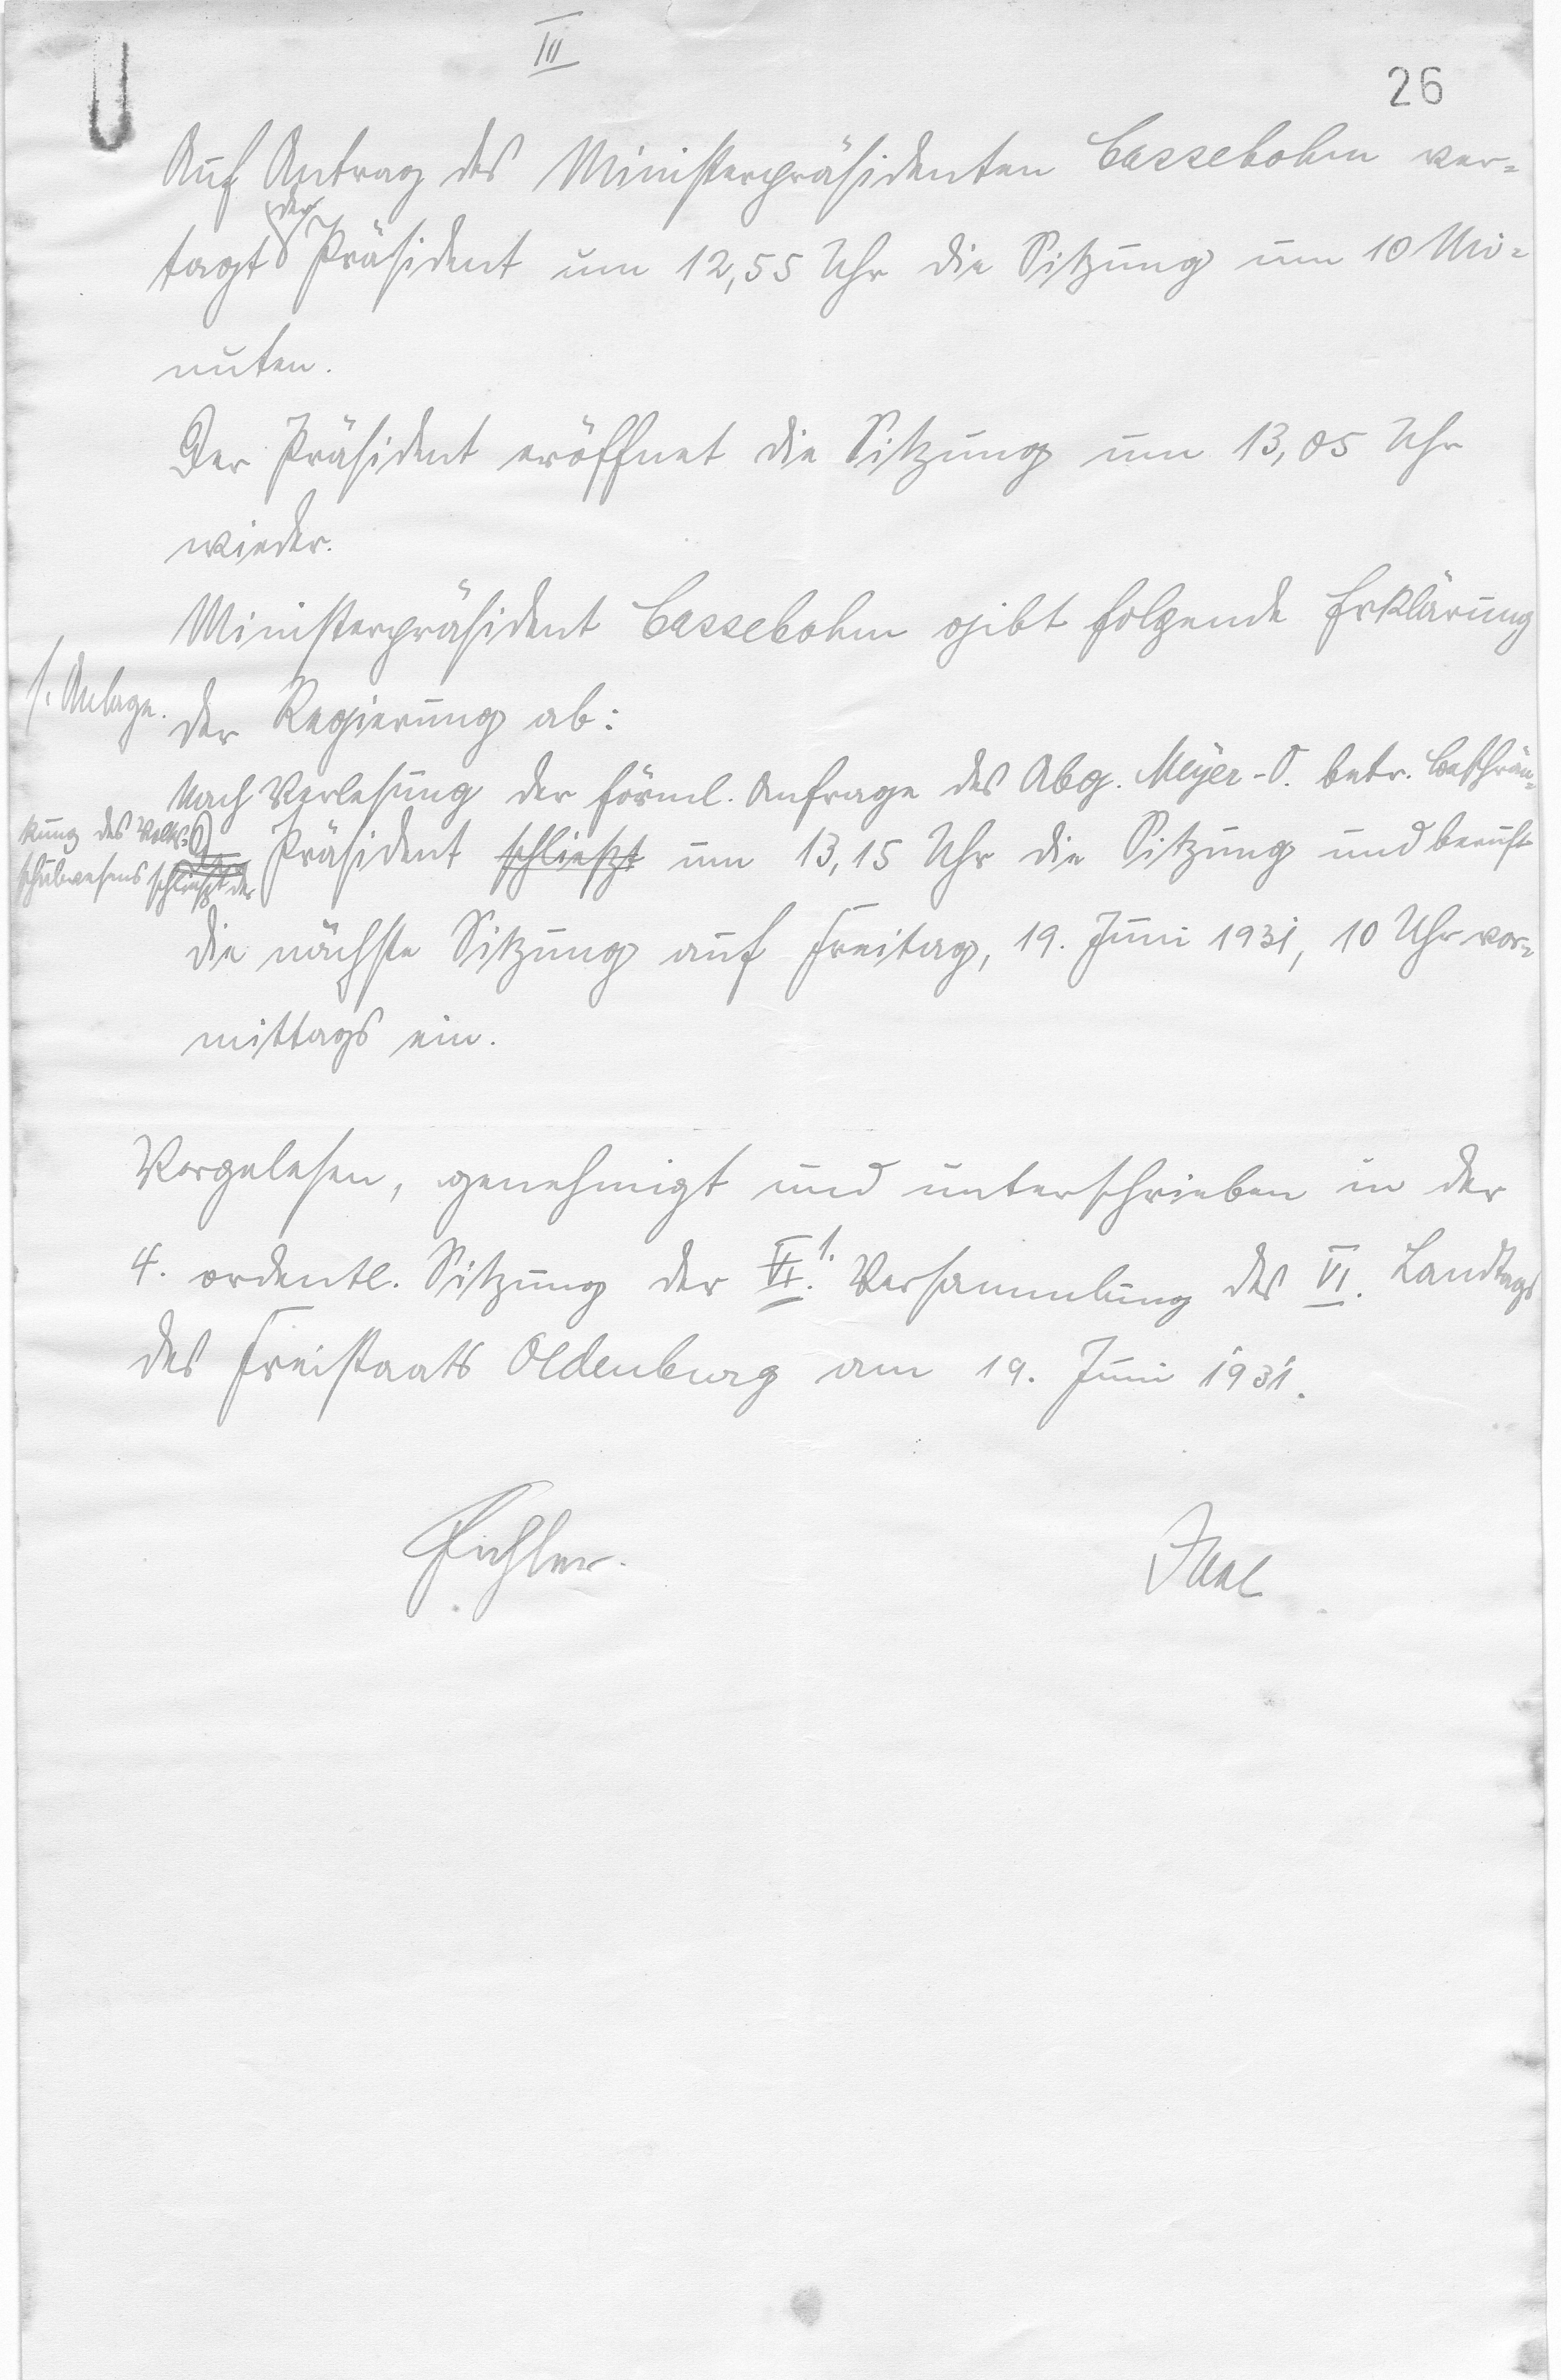 III
26
Auf Antrag des Ministerpräsidenten Cassebohm ver-
tagt der Präsident um 12,55 Uhr die Sitzung um 10 Mi-
nuten.
Der Präsident eröffnet die Sitzung um 13,05 Uhr
wieder.
Ministerpräsident Cassebohm gibt folgende Erklärung
s. Anlage.
der Regierung ab:
Nach Verlesung der förml. Anfrage des Abg. Meyer-O. betr. Beschrän-
kung des Volks-
schulwesens schließt der
Präsident schließt um 13,15 Uhr die Sitzung und beruft
die nächste Sitzung auf Freitag, 19. Juni 1931, 10 Uhr vor-
mittags ein.
Vorgelesen, genehmigt und unterschrieben in der
4. ordentl. Sitzung der VI. 1. Versammlung des VI. Landtags
des Freistaats Oldenburg am 19. Juni 1931.